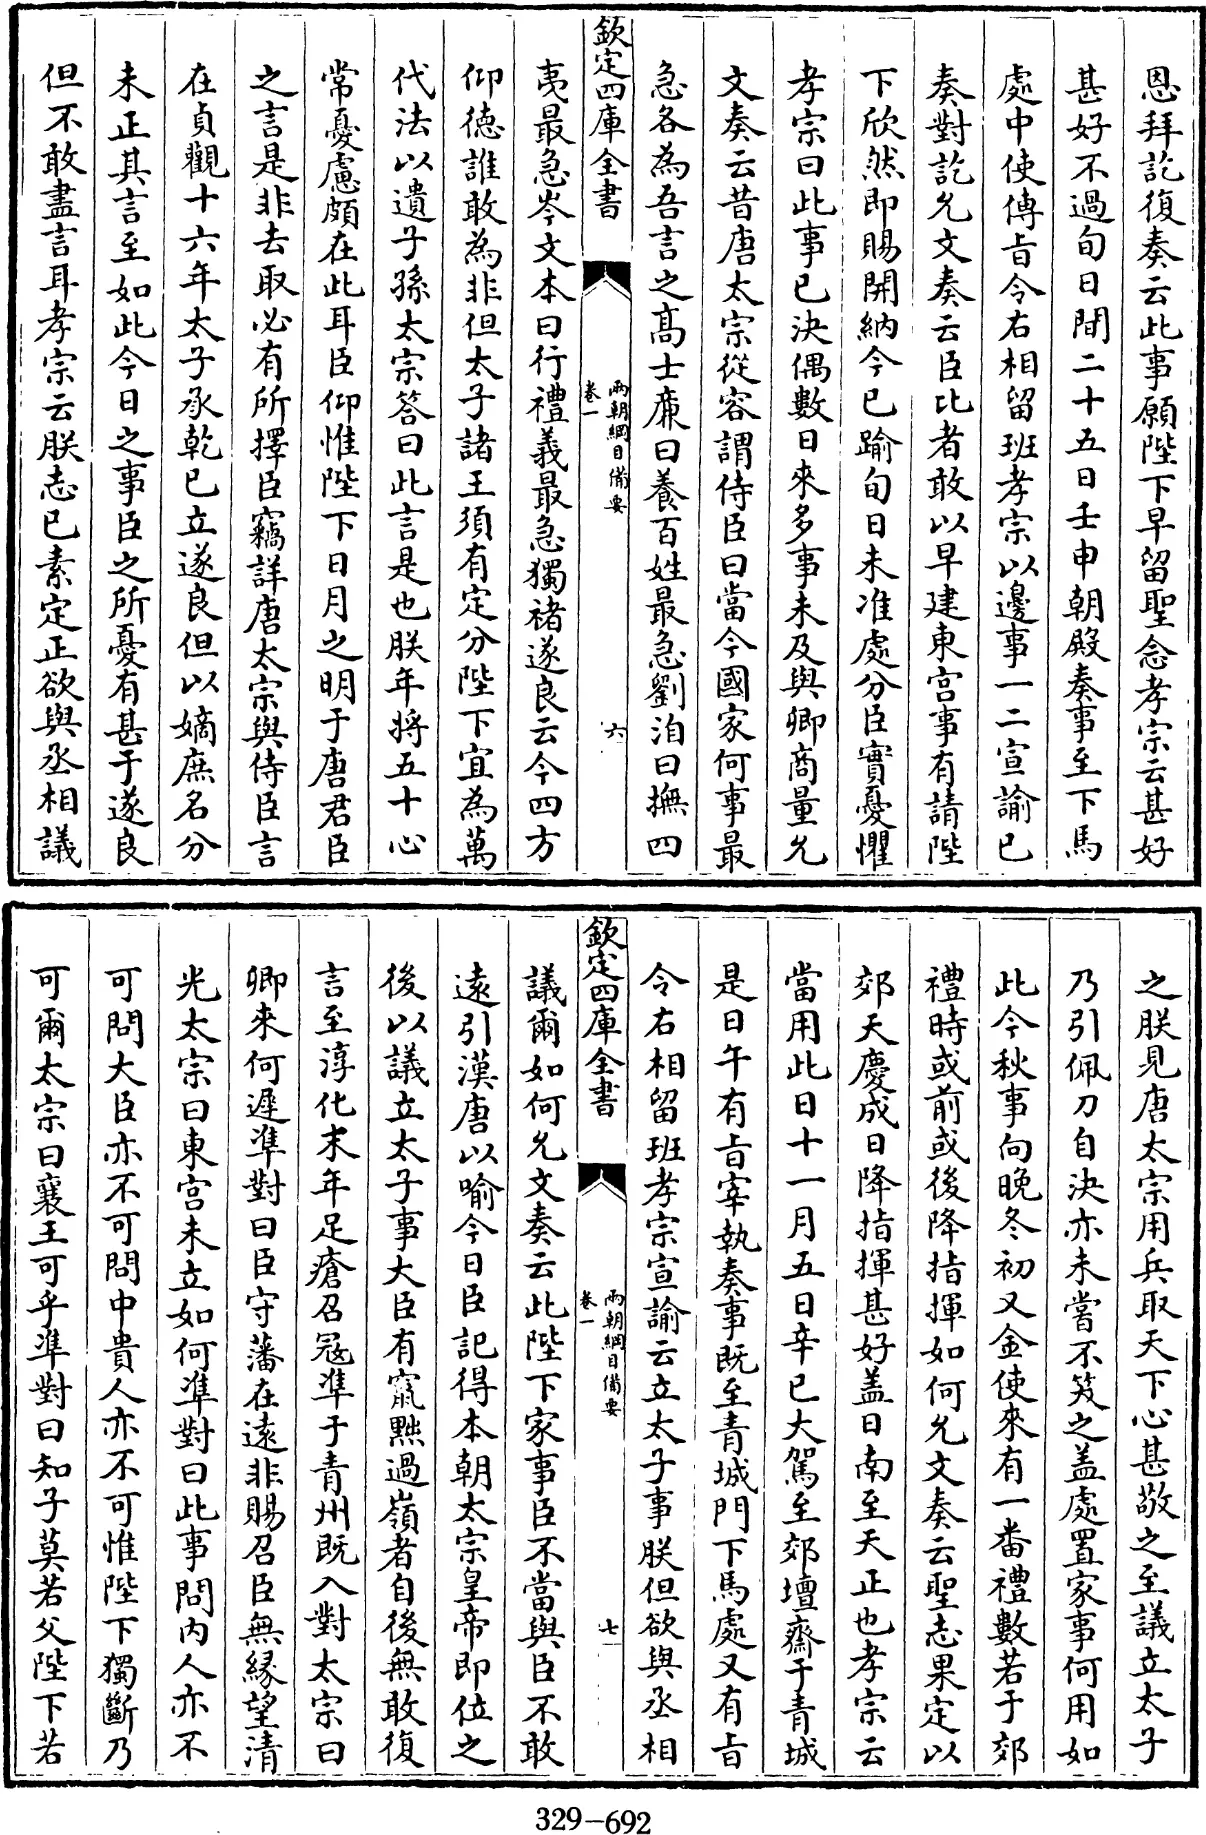 恩拜訖復奏云此事願陛下早留聖念孝宗云甚好
甚好不過旬日間二十五日壬申朝殿奏事至下馬
處中使傳旨令右相留班孝宗以邊事一二宣諭已
奏對訖允文奏云臣比者敢以早建東宫事有請陛
下欣然即賜開納今已踰旬日未准處分臣實憂懼
孝宗曰此事已決偶數日來多事未及與卿商量允
文奏云昔唐太宗從容謂侍臣曰當今國家何事最
急各為吾言之髙士廉曰養百姓最急劉洎曰撫四
欽定四庫全書
兩朝綱目備要
卷一
六
夷最急岑文本曰行禮義最急獨褚遂良云今四方
仰德誰敢為非但太子諸王須有定分陛下宜為萬
代法以遺子孫太宗答曰此言是也朕年将五十心
常憂慮頗在此耳臣仰惟陛下日月之明于唐君臣
之言是非去取必有所擇臣竊詳唐太宗與侍臣言
在貞觀十六年太子承乾已立遂良但以嫡庶名分
未正其言至如此今日之事臣之所憂有甚于遂良
但不敢盡言耳孝宗云朕志已素定正欲與丞相議
之朕見唐太宗用兵取天下心甚敬之至議立太子
乃引佩刀自決亦未嘗不笑之盖處置家事何用如
此今秋事向晚冬初又金使來有一番禮數若于郊
禮時或前或後降指揮如何允文奏云聖志果定以
郊天慶成日降指揮甚好盖日南至天正也孝宗云
當用此日十一月五日辛巳大駕至郊壇齋于青城
是日午有旨宰執奏事既至青城門下馬處又有旨
令右相留班孝宗宣諭云立太子事朕但欲與丞相
欽定四庫全書
兩朝綱目備要
卷一
七
議爾如何允文奏云此陛下家事臣不當與臣不敢
遠引漢唐以喻今日臣記得本朝太宗皇帝即位之
後以議立太子事大臣有竄黜過嶺者自後無敢復
言至淳化末年足瘡召冦凖于青州既入對太宗曰
卿來何遲凖對曰臣守藩在遠非賜召臣無緣望清
光太宗曰東宫未立如何凖對曰此事問内人亦不
可問大臣亦不可問中貴人亦不可惟陛下獨斷乃
可爾太宗曰襄王可乎凖對曰知子莫若父陛下若
329-692